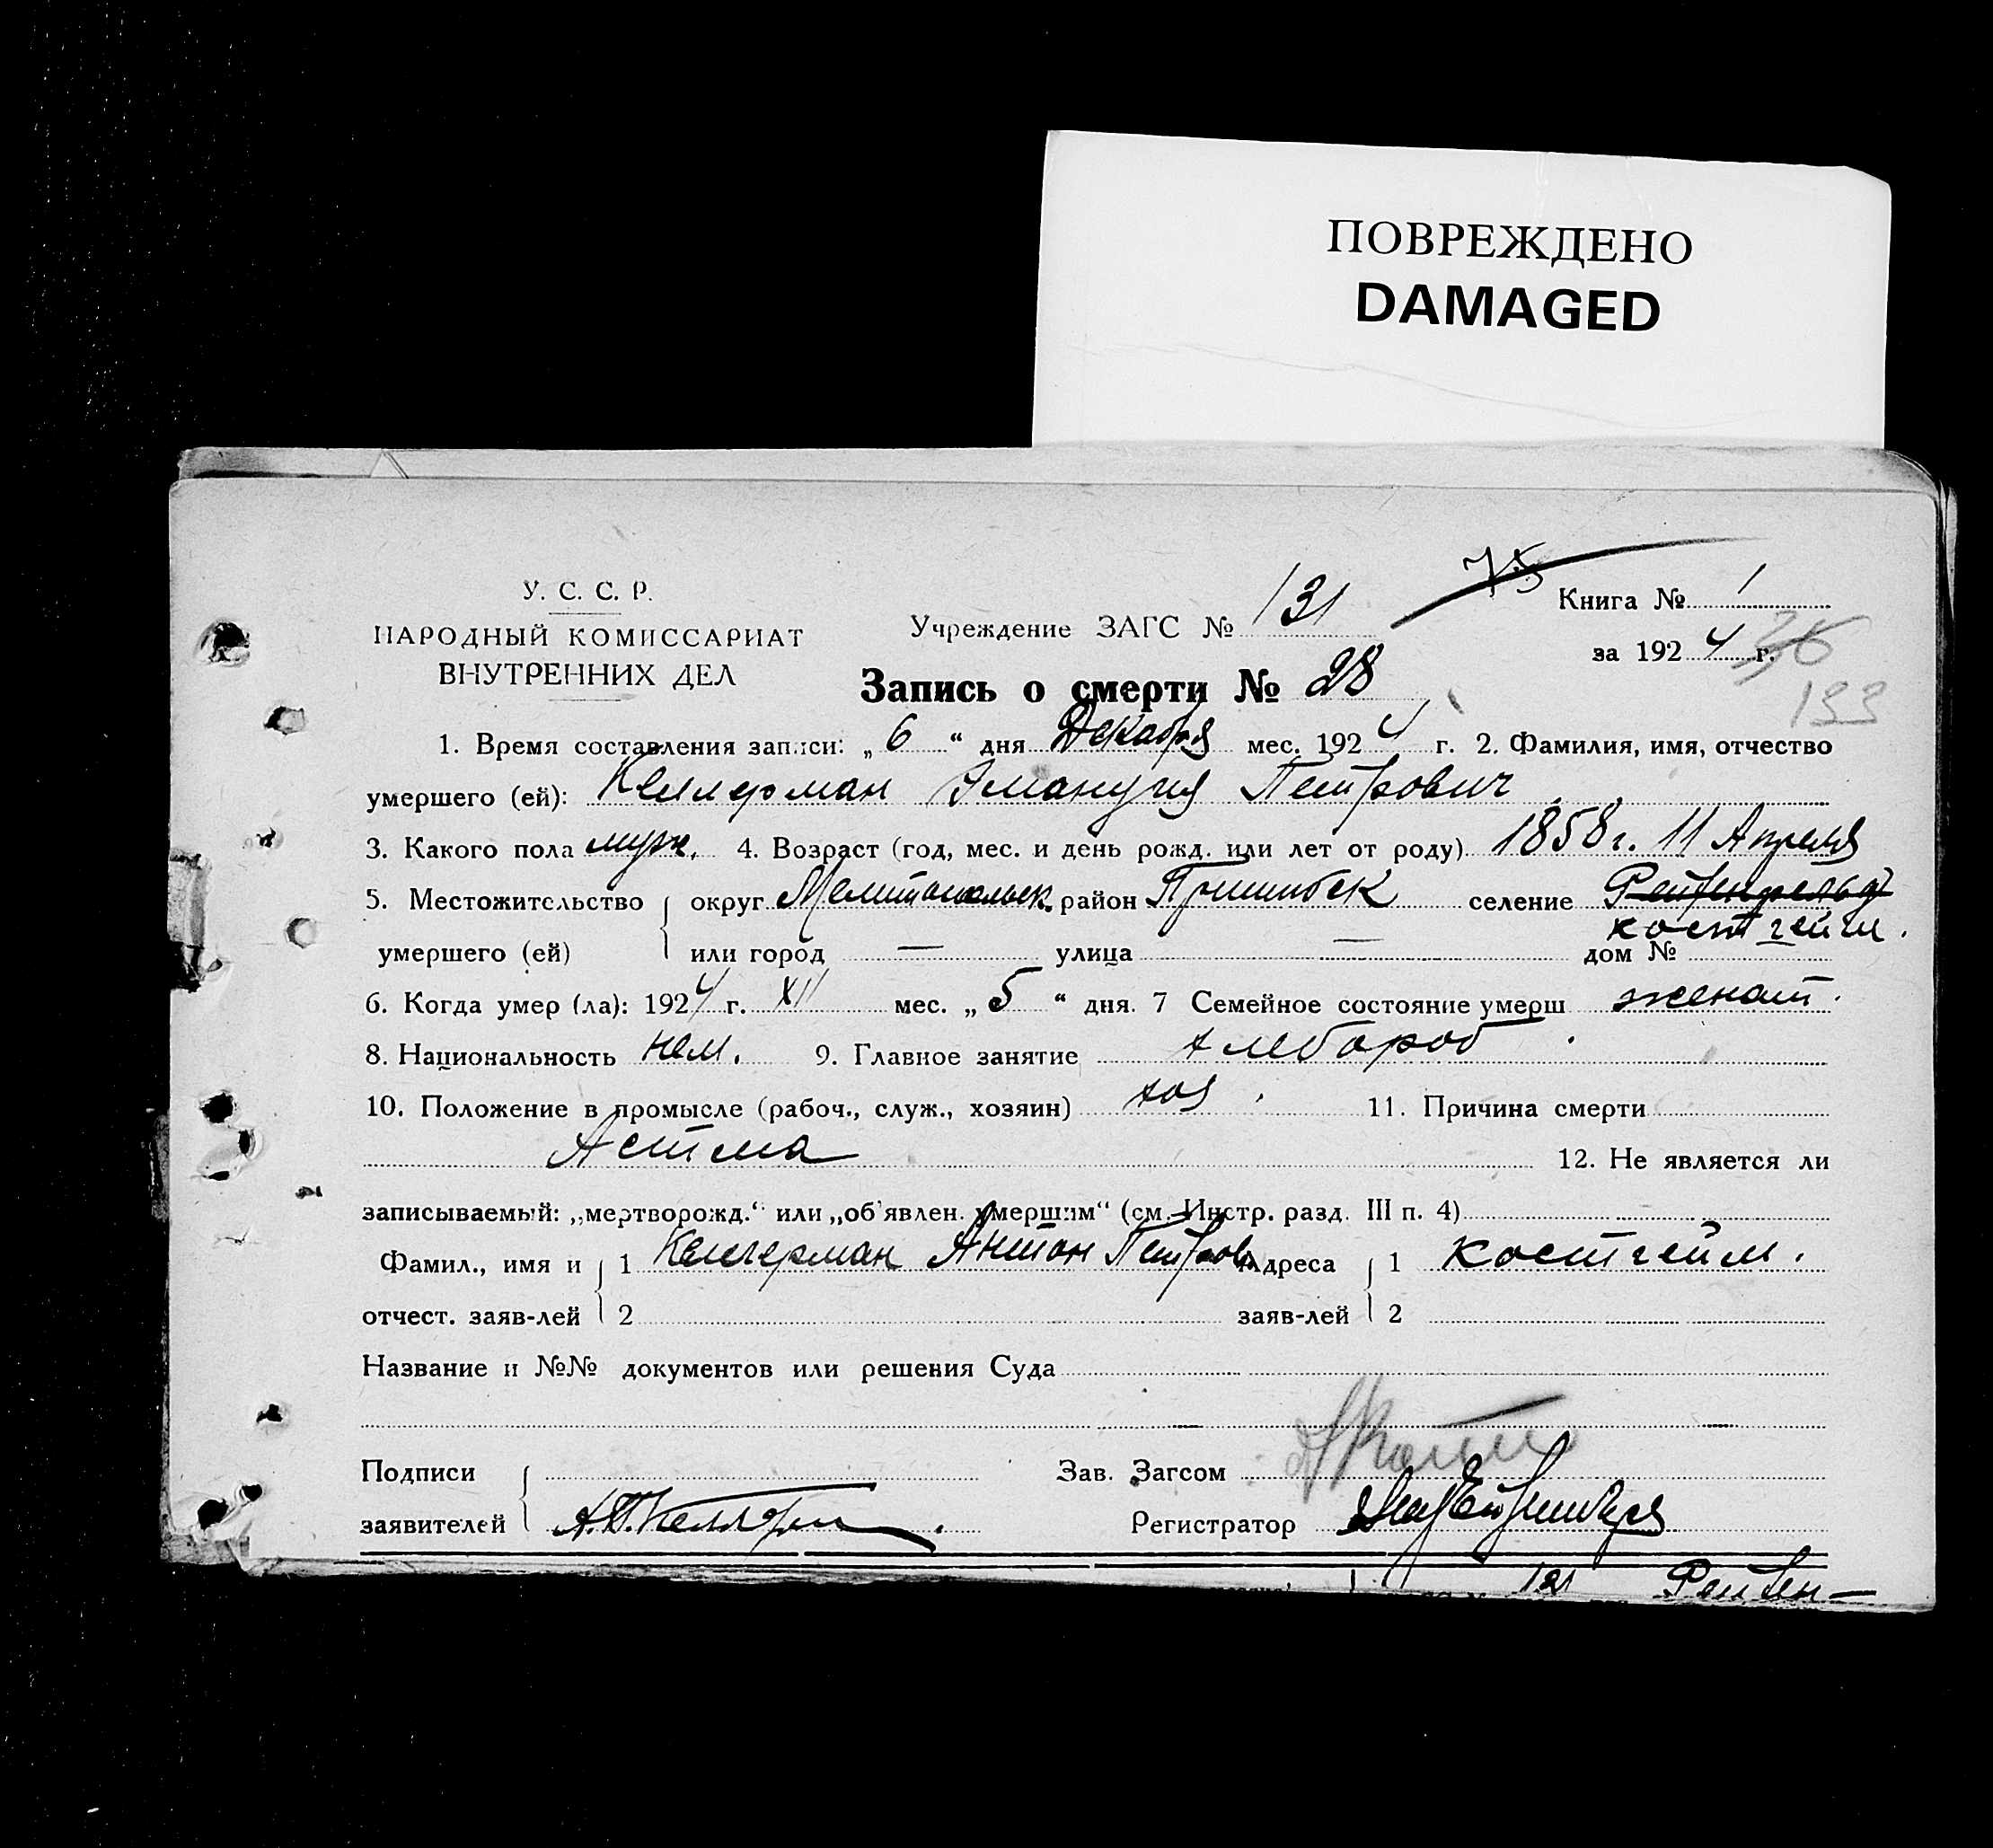 ПОВРЕЖДЕНО
DAMAGED
У. С. С. Р.
НАРОДНЫЙ КОМИССАРИАТ
ВНУТРЕННИХ ДЕЛ
Учреждение ЗАГС № 131
75
Книга № 1
за 1924 г. 26
133
Запись о смерти № 28
1. Время составления записи: „6“ дня Декабря мес. 1924 г. 2. Фамилия, имя, отчество
умершего (ей): Келлерман Эмануил Петрович
3. Какого пола муж. 4. Возраст (год, мес. и день рожд. или лет от роду) 1858 г. 11 Апреля
5. Местожительство округ Мелитопольск. район Пришибск селение Рейхенфельд
костгейм.
умершего (ей) или город — улица — дом №
6. Когда умер (ла): 1924 г. XII мес. „5“ дня. 7 Семейное состояние умерш женат.
8. Национальность нем. 9. Главное занятие хлебороб
10. Положение в промысле (рабоч., служ., хозяин) хоз. 11. Причина смерти
Астма 12. Не является ли
записываемый: „мертворожд.“ или „об'явлен. умершим“ (см. Инстр. разд. III п. 4)
Фамил., имя и 1 Келлерман Антон Петров. Адреса 1 костгейм.
отчест. заяв-лей 2 заяв-лей 2
Название и №№ документов или решения Суда
Подписи Зав. Загсом
заявителей А.П. Келлерман Регистратор
121 Рейхен-